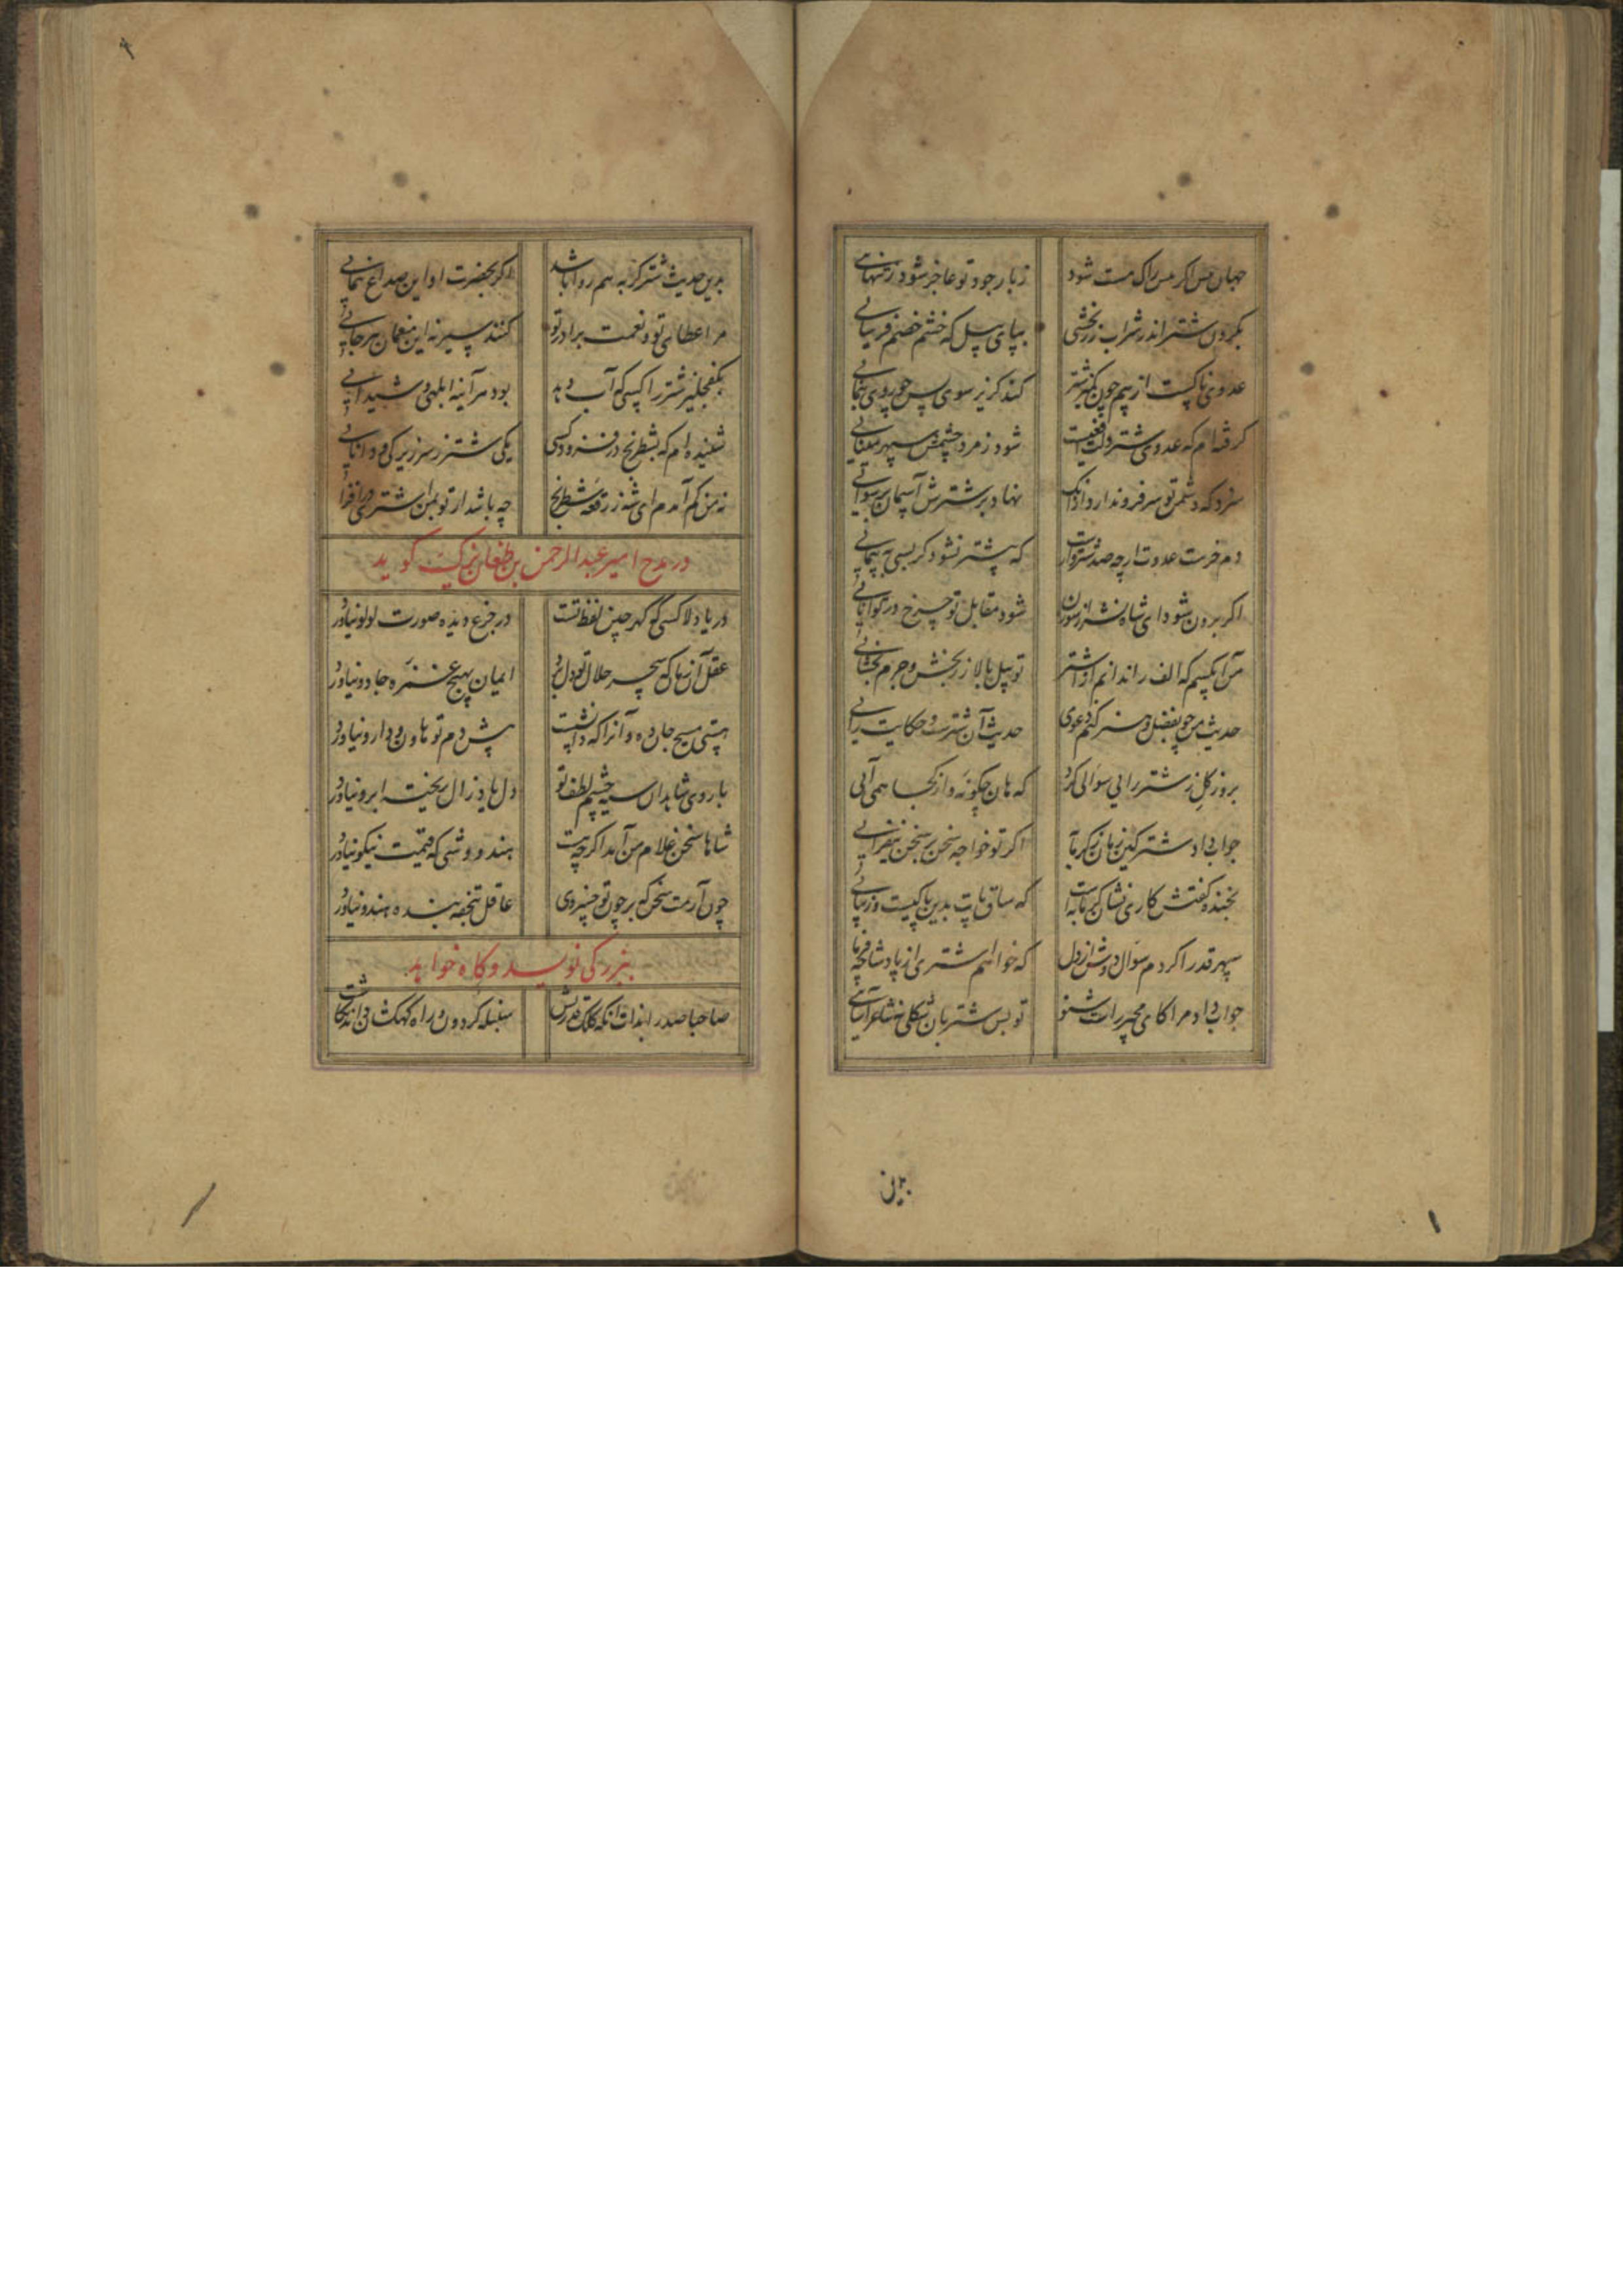 جهان مس اکر مس راک مست شود
زبار جود تو عاجز شود زتنهایی
بکردن شتر اندر شراب زر بخشی
بپای پیل که خشم خصم فرسایی
عدوی ناکست از بیم چون کمیز شتر
کند کریز سوی پس چو روی بنمایی
کرفته ام که عدوی شتر دلت افعیست
شود زمرد چشمش سپهر مینایی
سزد که دشمن تو سر فرو ندارد زانک
نهاد بر شترش آسمان برسوایی
دم خرست عدوت ارچه صد شتر وارست
که بیشتر نشود کر بسی بپیمایی
اکر برون شود ای شاه شتر از سوزن
شود مقابل تو چرخ در توانایی
من آن کسم که الف را ندانم از اشتر
تو پیل بالا زر بخش و جرم بخشایی
حدیث من چو بفضل و هنر کنم دعوی
حدیث آن شترست و حکایت رایی
بروز کلز شتر رایی سوالی کرد
که هان چکونه و از کجا همی آیی
جواب داد شتر کین زمان زکرمابه
اکر تو خواجه سخن بر سخن نیفزایی
بخنده کفتش کاری نشان کرمابه است
که ساق پات بدین پاکیست و زیبایی
سپهر قدرا کردم سوال دوش از دل
که خواهم اشتری از پادشا چه فرمایی
جواب داد مرا کای مجیر راست شنو
تو بس شتربان شکلی نه شاعر آسایی
بدانی
بدین حدیث شتر کربه هم روا باشد
اکر بحضرت او این صداع بنمایی
مرا عطای تو و نعمت برادر تو
کنند سیر نه این منعمان هرجایی
بکفجلیز شتر را کسی که آب دهد
بود هر آینه ابلهی و شیدایی
شنیده ام که بشطرنج در فزود کسی
یکی شتر ز سر زیرکی و دانایی
نه من کم آمدم ای شه ز رقعه شطرنج
چه باشد ار تو بمن اشتری در افزایی
در مدح امیر عبدالرحمن بن طغان یزک گوید
دریا دلا کسی که کهر چین لفظ تست
در جزع دیده صورت لولو نیاورد
عقل آن زمان که سحر حلال تو دل برد
ایمان بهیچ غمزه جادو نیاورد
هستی مسیح جان ده و آنرا که دانشست
پیش دم تو هاون و دارو نیاورد
با روی شاهدان سیه چشم لطف تو
دل یاد زال ریخته ابرو نیاورد
شاها سخن غلام من آمد اکر چه هست
هندو وشی که قیمت نیکو نیاورد
چون آرمت سخن که بر چون تو خسروی
عاقل بتحفه بنده هندو نیاورد
ببزرکی نویسد و کاه خواهد
صاحبا صدرا بذات آنکه کلک قدرتش
سنبله کردون و راه کهکشان داند نکاشت